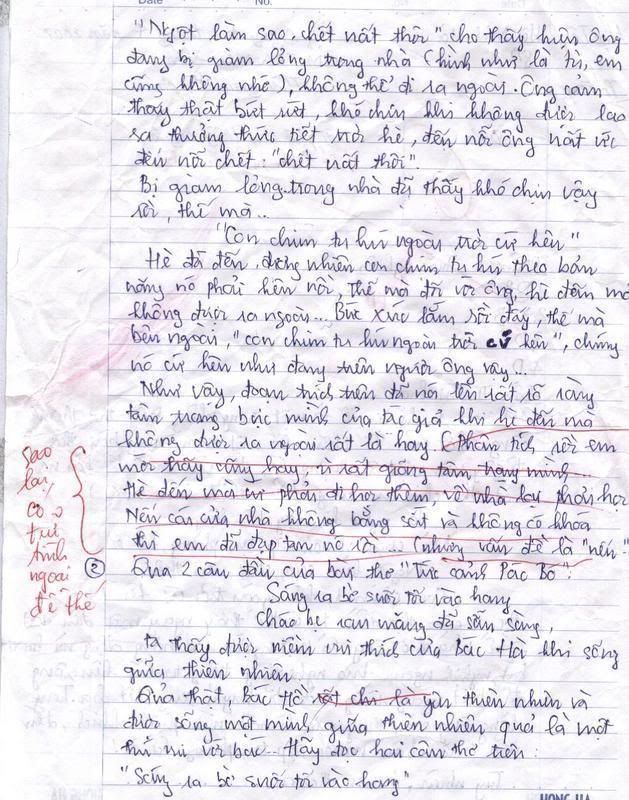 DATE No.
"Ngột làm sao, chết uất thôi" cho thấy hiện ông
đang bị giam lỏng trong nhà (hình như là tù, em
cũng không nhớ), không thể đi ra ngoài. Ông cảm
thấy thật bứt rứt, khó chịu khi không được lao
ra thưởng thức tiết trời hè, đến nỗi ông uất ức
đến nỗi chết: "chết uất thôi".
Bị giam lỏng trong nhà đã thấy khó chịu vậy
rồi, thế mà...
"Con chim tu hú ngoài trời cứ kêu"
Hè đã đến, đương nhiên con chim tu hú theo bản
năng nó phải kêu rồi, thế mà đối với ông, hè đến mà
không được ra ngoài... Bức xúc lắm rồi đấy, thế mà
bên ngoài, "con chim tu hú ngoài trời cứ kêu", chúng
nó cứ kêu như đang trêu người ông vậy...
Như vậy, đoạn trích trên đã nói lên rất rõ ràng
tâm trạng bức mình của tác giả khi hè đến mà
không được ra ngoài rất là hay (Phân tích rồi em
mới thấy cũng hay, vì rất giống tâm trạng mình...
Hè đến mà cứ phải đi học thêm, về nhà lại phải học
Nếu cái cửa nhà không bằng sắt và không có khóa
thì em đã đạp tan nó rồi... (nhưng vấn đề là "nếu"...
sao
lại
có
tự
tình
ngoài
đề thế
② Qua 2 câu đầu của bài thơ "Tức cảnh Pác Bó":
Sáng ra bờ suối tối vào hang
Cháo bẹ rau măng đã sẵn sàng,
ta thấy được niềm vui thích của Bác Hồ khi sống
giữa thiên nhiên
Quả thật, bác Hồ rất chi là yêu thiên nhiên và
được sống một mình giữa thiên nhiên quả là một
thú vui với bác... Hãy đọc hai câu thơ trên:
"Sáng ra bờ suối tối vào hang"
HONG HA